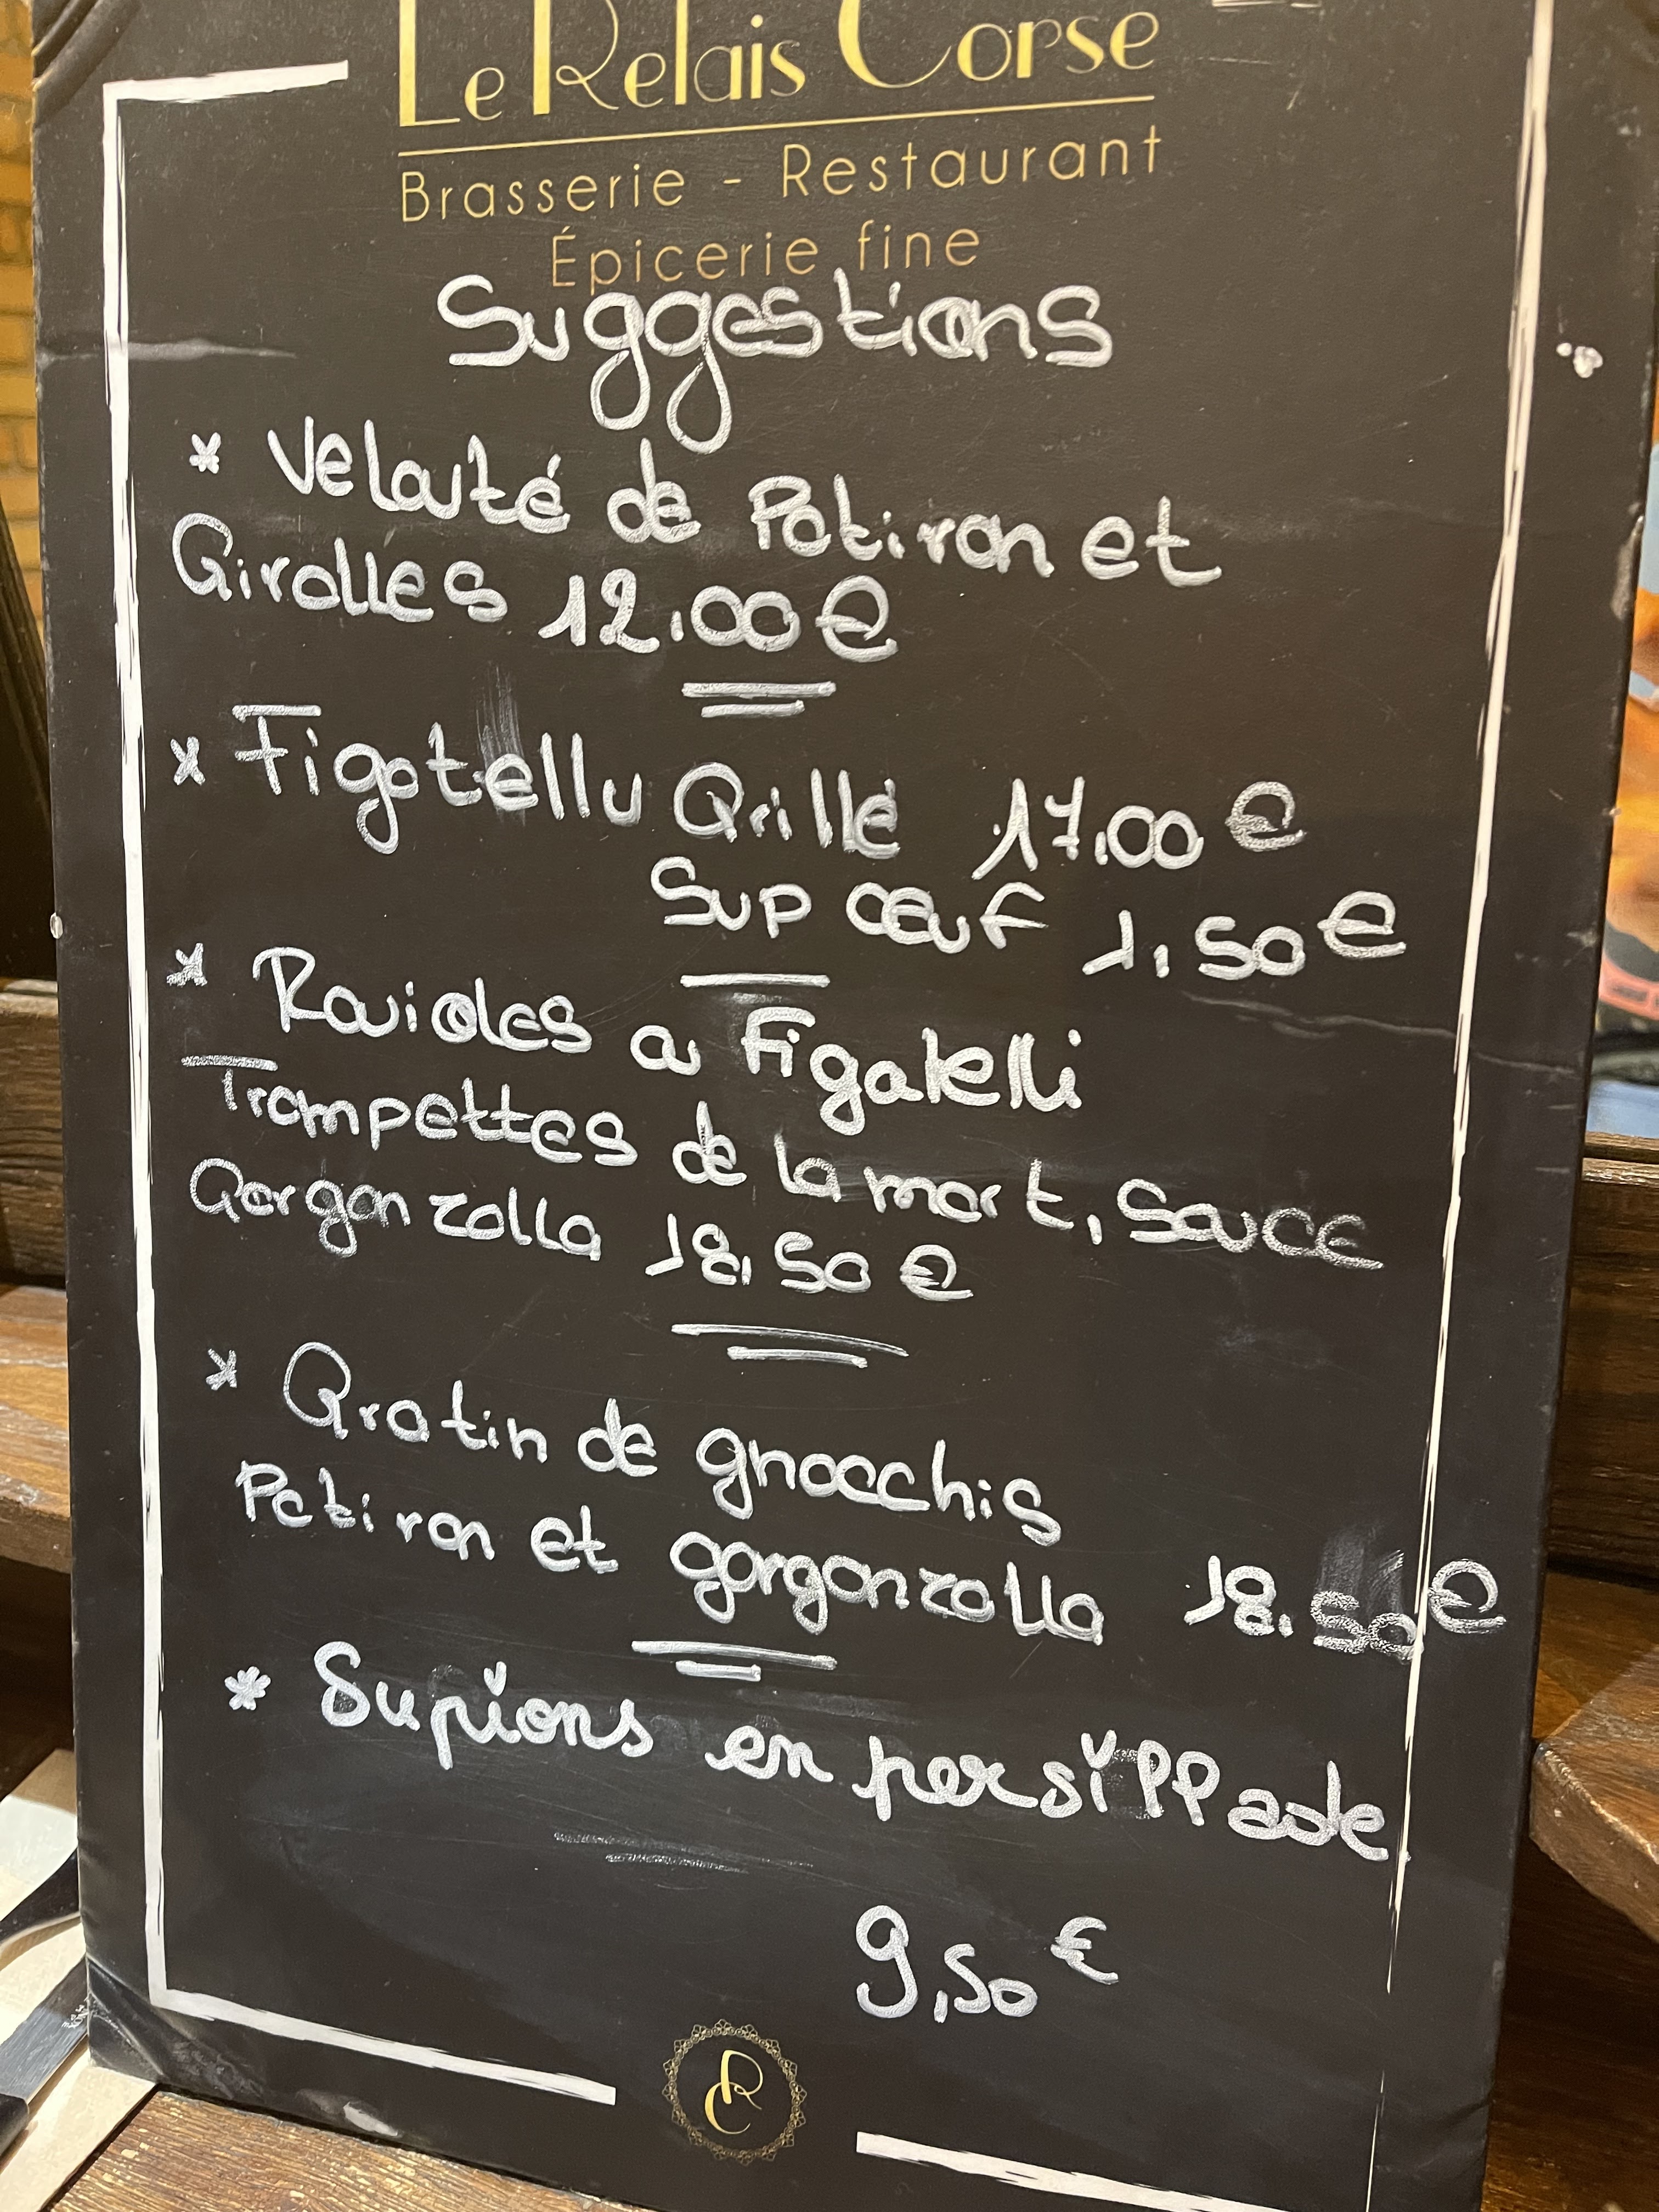 Le Relais Corse
Brasserie - Restaurant
Épicerie fine
Suggestions
* Velouté de Potiron et
Girolles 12.00 €
* Figatellu Grillé 17.00 €
Sup œuf 1,50 €
* Ravioles a Figatelli
Trompettes de la mort, Sauce
Gorgonzolla 18,50 €
* Gratin de gnocchis
Potiron et gorgonzolla 18.50 €
* Supions en persillade
9,50 €
RC